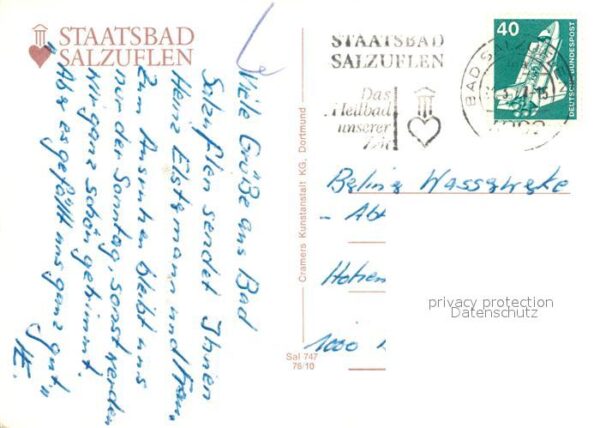 STAATSBAD
SALZUFLEN
Viele Grüße aus Bad
Salzuflen sendet Ihnen
Heinz Eistermann und Frau.
Zum Ausruhen bleibt uns
nur der Sonntag, sonst werden
wir ganz schön getrimmt.
"Aber es gefällt uns ganz gut"
HE.
Cramers Kunstanstalt KG, Dortmund
Sal 747
76/10
STAATSBAD
SALZUFLEN
Das
Heilbad
unserer
Zeit
BAD SALZUFLEN
40
DEUTSCHE BUNDESPOST
Berling Wasserwerke
- Abt
Hohen
1000
privacy protection
Datenschutz